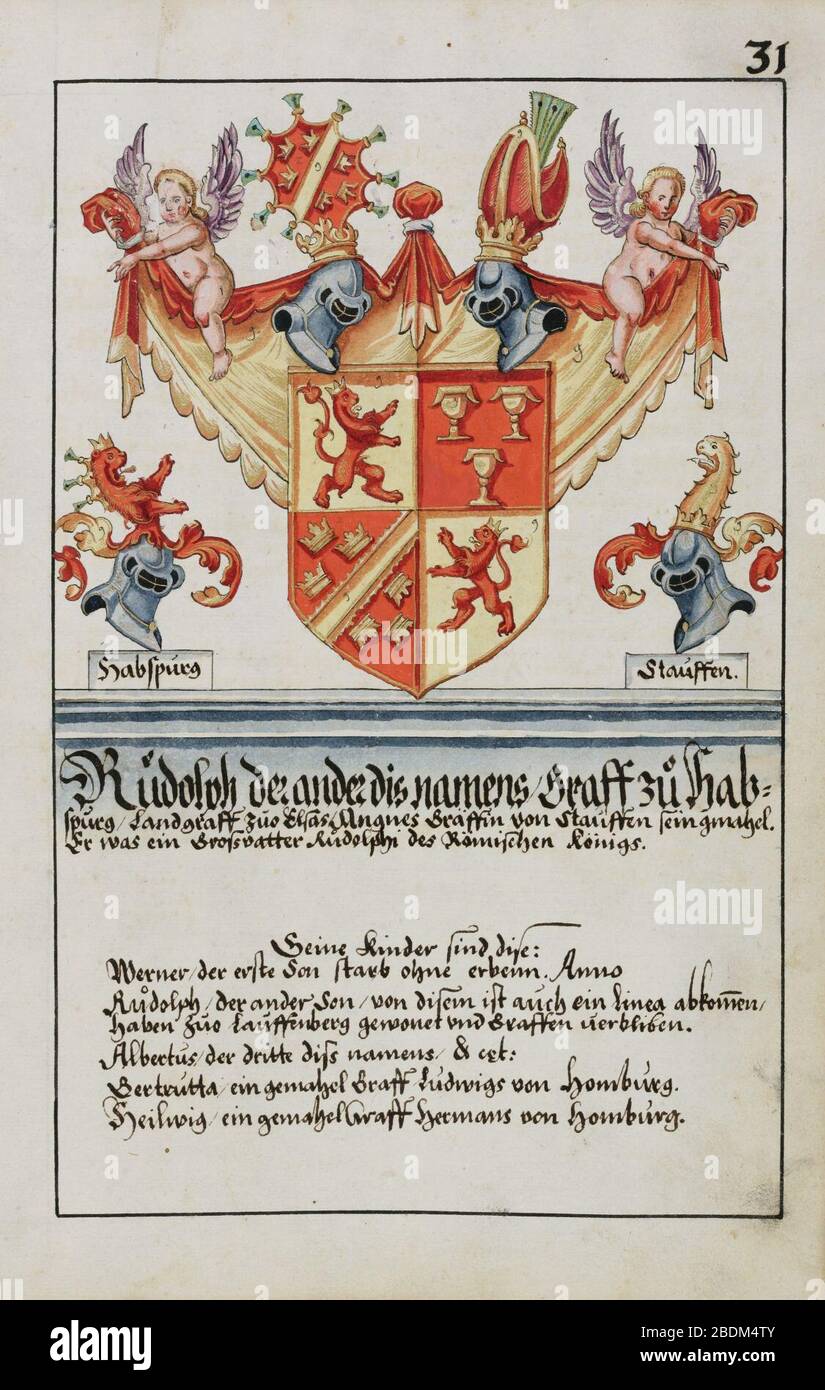 31
Habspurg
Stauffen.
Růdolph der ander dis namens / Graff zů Hab=
spurg / Landgraff zuo Elsas / Angnes Gräffin von Stauffen sein gmahel.
Er was ein Grossvatter Rudolphi des Römischen Königs.
Seine Kinder sind dise:
Werner / der erste Son starb ohne erbenn. Anno
Růdolph / der ander Son / von disem ist auch ein Linea abkom̄en /
haben zuo Lauffenberg gewonet vnd Graffen verbliben.
Albertus / der dritte diss namens / & cęt:
Gertrutta / ein gemahel Graff Ludwigs von Homburg.
Heilwig / ein gemahel Graff Hermans von Homburg.
alamy
Image ID: 2BDM4TY
www.alamy.com